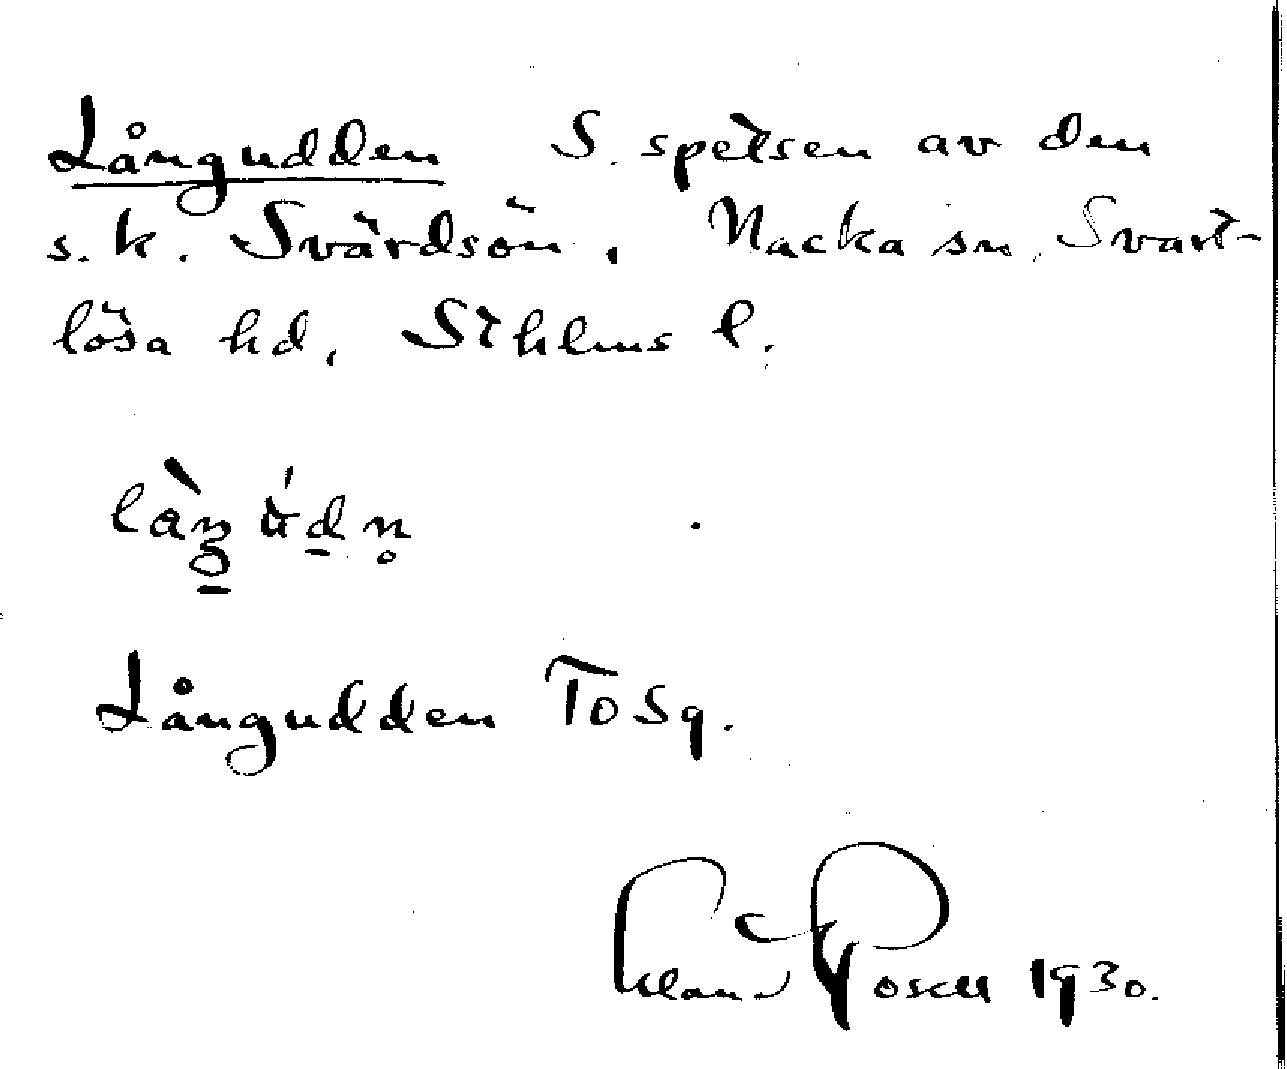 Långudden S. spetsen av den
s.k. Svärdsön, Nacka sn, Svart-
lösa hd, Sthlms l.
Långudden ToSq.
1930.